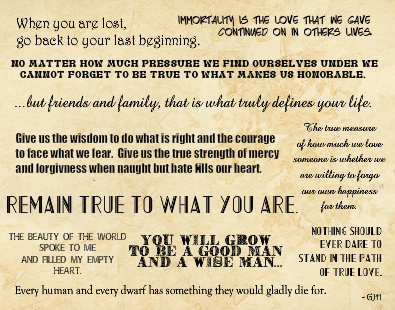 When you are lost,
go back to your last beginning.
IMMORTALITY IS THE LOVE THAT WE GAVE
CONTINUED ON IN OTHERS LIVES.
NO MATTER HOW MUCH PRESSURE WE FIND OURSELVES UNDER WE
CANNOT FORGET TO BE TRUE TO WHAT MAKES US HONORABLE.
...but friends and family, that is what truly defines your life.
Give us the wisdom to do what is right and the courage
to face what we fear. Give us the true strength of mercy
and forgivness when naught but hate fills our heart.
The true measure
of how much we love
someone is whether we
are willing to forgo
our own happiness
for them.
REMAIN TRUE TO WHAT YOU ARE.
THE BEAUTY OF THE WORLD
SPOKE TO ME
AND FILLED MY EMPTY
HEART.
YOU WILL GROW
TO BE A GOOD MAN
AND A WISE MAN...
NOTHING SHOULD
EVER DARE TO
STAND IN THE PATH
OF TRUE LOVE.
Every human and every dwarf has something they would gladly die for.